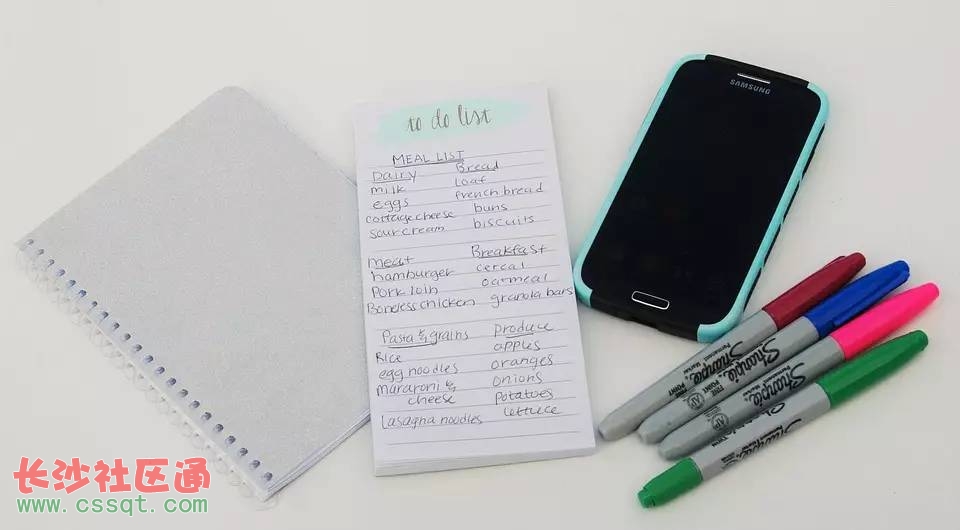 to do list
MEAL LIST
Dairy Bread
milk loaf
eggs french bread
cottage cheese buns
sour cream biscuits
meat Breakfast
hamburger cereal
Pork loin oatmeal
Boneless chicken granola bars
Pasta & grains produce
Rice apples
egg noodles oranges
mararoni & onions
cheese potatoes
lasagna noodles lettuce
SAMSUNG
Sharpie
Permanent Marker
FINE POINT
Sharpie
Permanent Marker
FINE POINT
AP
Sharpie
Permanent Marker
AP
Sharpie
长沙社区通
www.cssqt.com